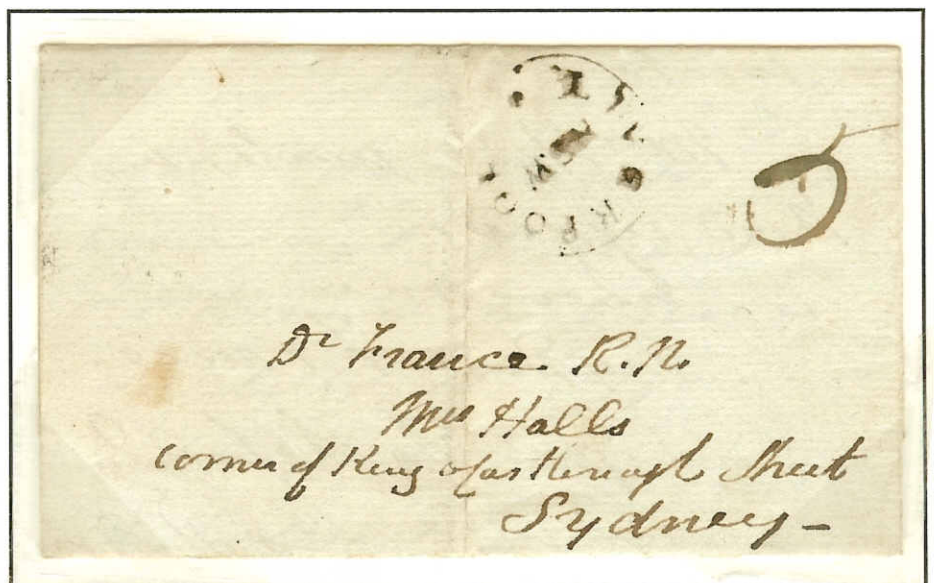 LIVERPOOL
N S W
5
Dr France. R.N.
Mrs Halls
corner of King & Castlereagh Street
Sydney –